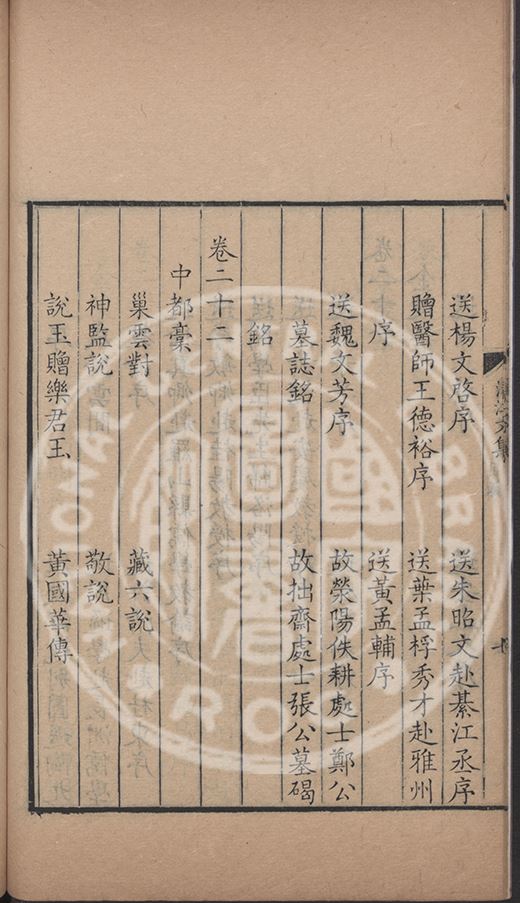 送楊文啓序　送朱昭文赴綦江丞序
贈醫師王德裕序　送葉孟桴秀才赴雅州
序　送黃孟輔序
送魏文芳序　故滎陽佚耕處士鄭公
墓誌銘　故拙齋處士張公墓碣
銘
卷二十二
中都稾
巢雲對　藏六說
神監說　敬說
說玉贈樂君玉　黃國華傳